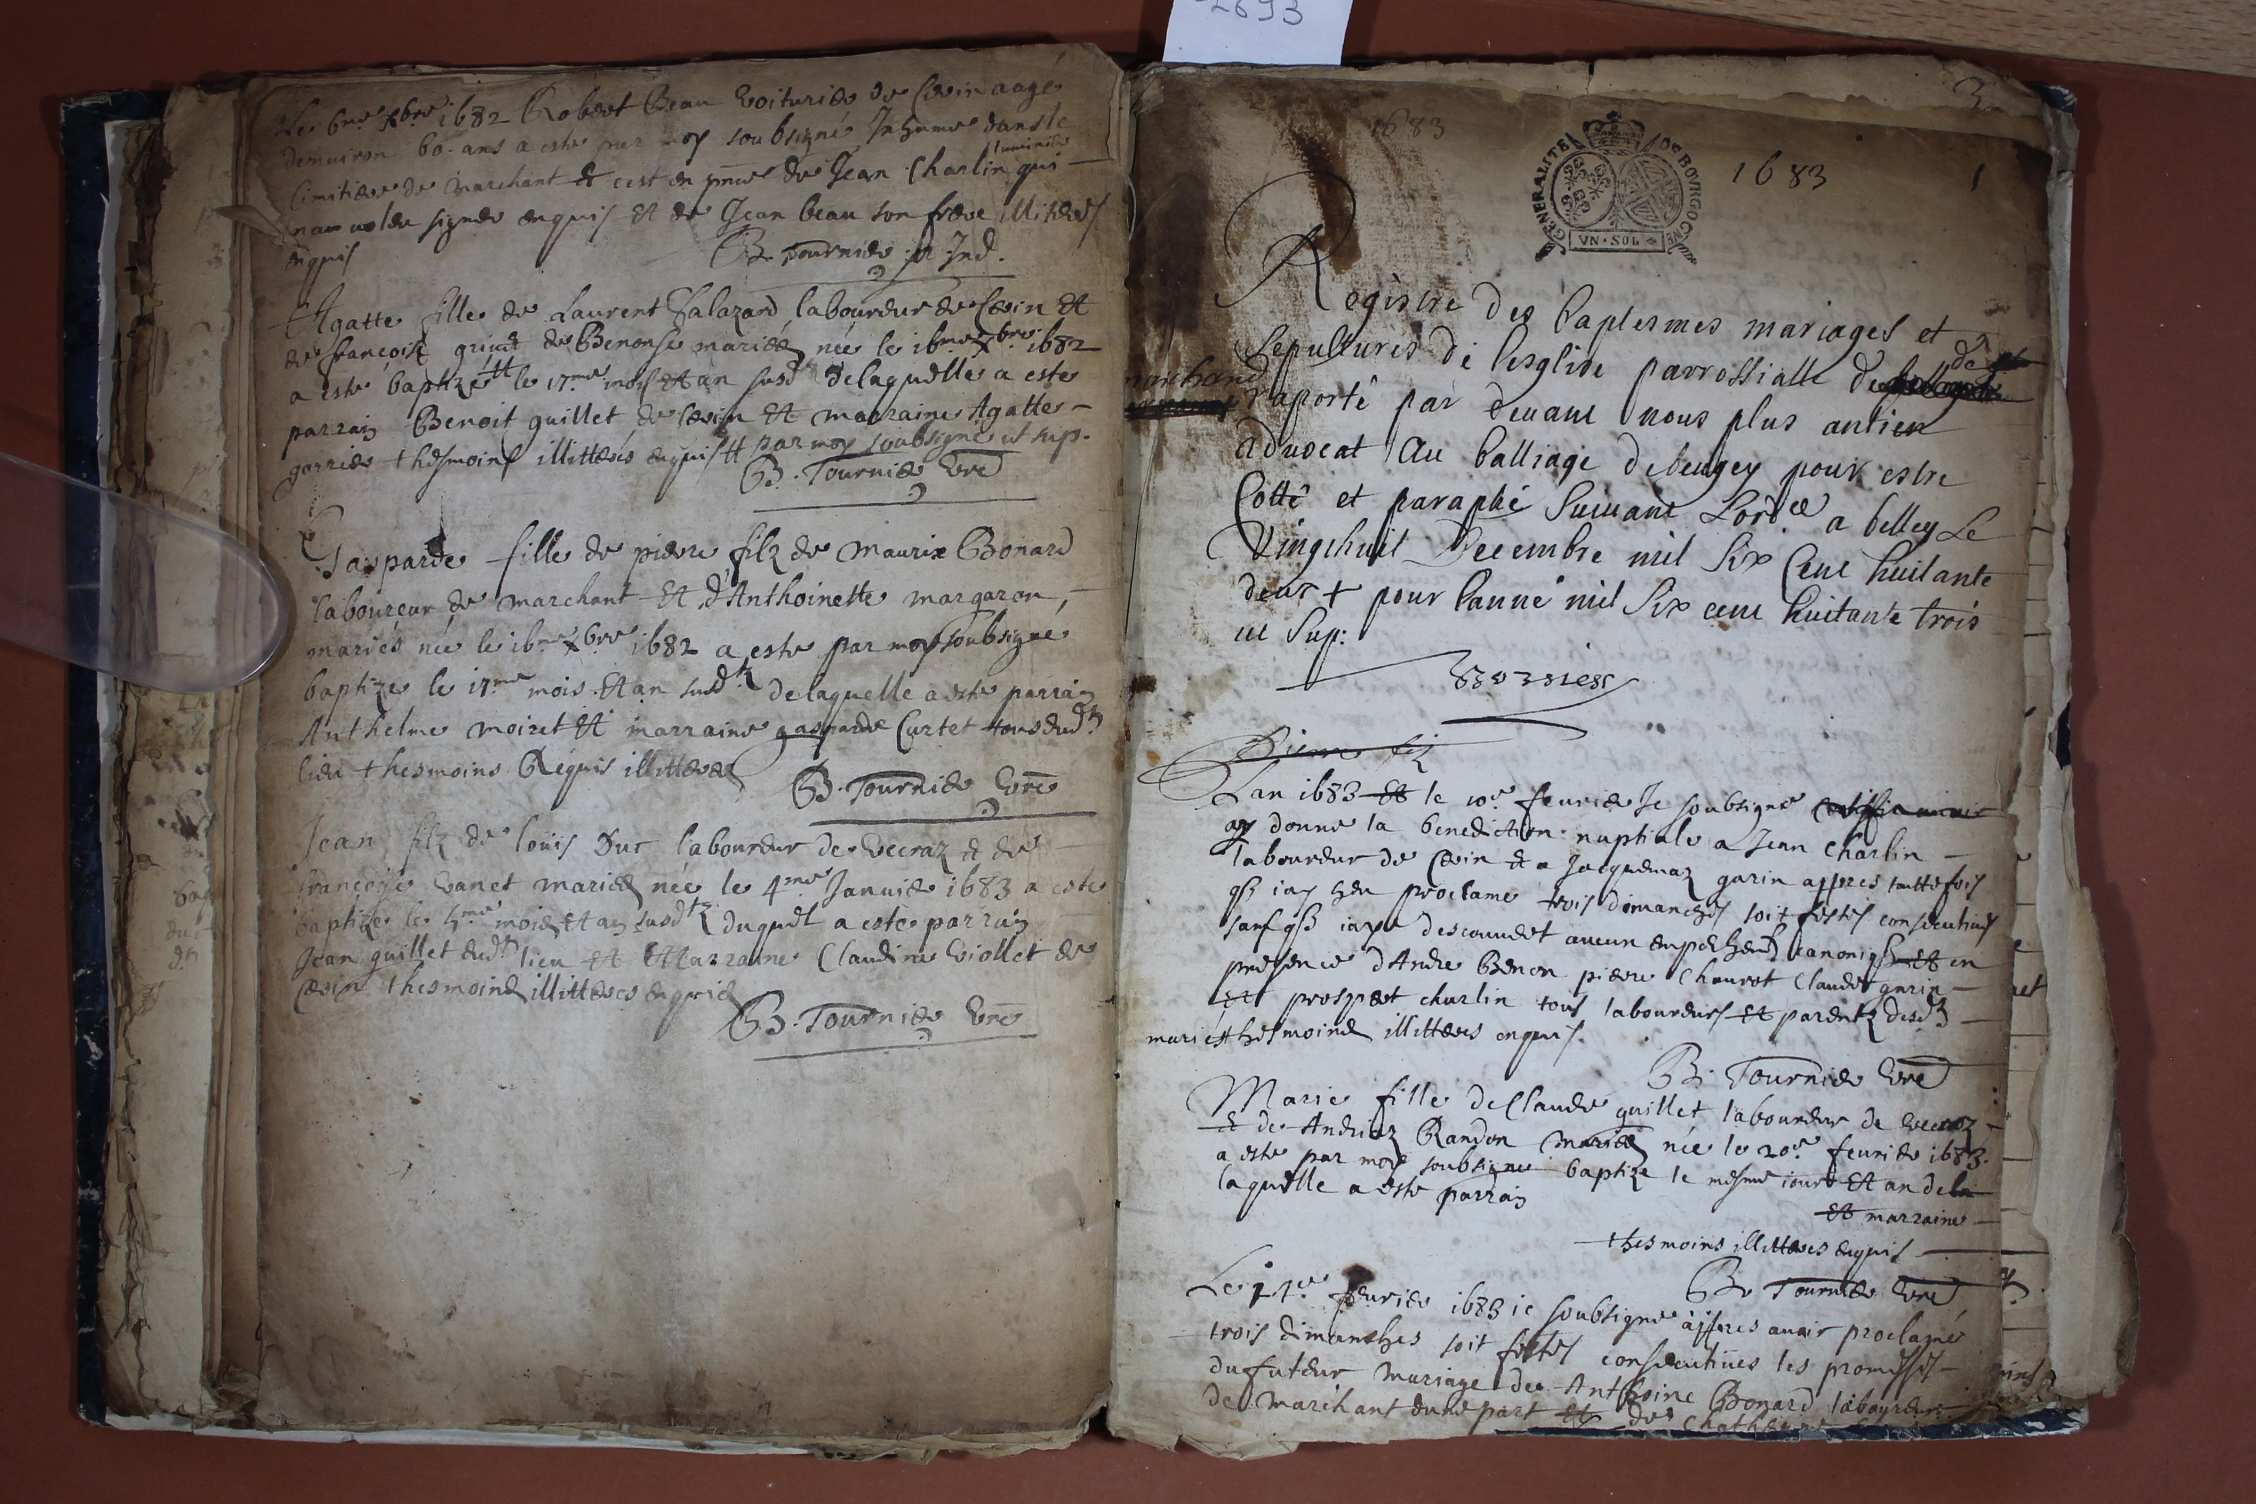 2693
Le 6me xbre 1682 Robert Beau voiturier de Cevin aagé
denuiron 60 ans a esté par moy soubsigné Inhumé dans le
luminaire
Cimitiere de marchant et cest en pnce de Jean Charlin qui
na voulu signer enquis Et de Jean beau son frere illiteres
enquis
B. Tournier pr Ind.
Agatte fille de Laurent Salazard laboureur de Cevin Et
de françoise de Benonse mariés née le 16me xbre 1682
a esté baptizé tt le 17me mois Et an susd delaquelle a esté
parrain Benoit guillet de Cevin Et marraine Agatte
garrier thesmoins illitterés enquis tt par moy soubsigné ut sup.
B. Tournier Vre
Gasparde fille de piere filz de maurix Bonard
laboureur de marchant Et d'Anthoinette margaron,
mariés née le 16me xbre 1682 a esté par moy soubsigné
baptizé le 17me mois Et an susdt delaquelle a esté parrain
Anthelme moiret Et marraine gasparde Curtet tous dudt
lieu thesmoins Requis illitteres
B. Tournier Vre
Jean filz de louis Duc laboureur de Vecraz et de
françoise Vanet mariés née le 4me Januier 1683 a esté
baptizé le 5me mois Et an susdt duquel a esté parrain
Jean guillet dudt lieu Et Marraine Claudine Viollet de
Cevin thesmoins illitteres enquis
B. Tournier Vre
3
1683
GENERALITE DE BOVRGOGNE
VN·SOL
1683
1
Registre des baptesmes mariages et
Sepultures de lesglise parrossialle de
de
marchand
raporté par deuant nous plus antien
aduocat au balliage debeugey pour estre
Cotté et paraphé Suiuant Lordce a belley Le
Vingthuit Decembre mil Six Cent huitante
deux + pour lanné mil Six cent huitante trois
ut Sup:
Pierre filz
Lan 1683 Et le 10e feurier Je soubsigné
ay donné la benediction nuptiale a Jean Charlin
laboureur de Cevin et a Jacquemaz garin appres touttefois
q iay heu proclamé trois dimanches soit festes consecutiues
sans q iaye descouuert aucun empechemt canoniq Et en
presence d'Andre Benon piere Chauvot Claude garin
Et prospert charlin tous laboureurs Et parentz desdt
mariés thesmoins illitteres enquis.
B. Tournier Vre
Marie fille de Claude guillet laboureur de Vecraz
et de Andriaz Randon mariés née le 20e feurier 1683.
a esté par moy soubsigné baptizé le mesme iour Et an dela
laquelle a esté parrain
Et marraine
thesmoins illitteres enquis
B. Tournier Vre
Le feurier 1683 ie soubsigné appres auoir proclamé
trois dimanches soit festes consecutiues les promesses
du futeur mariage de Anthoine Bonard laboureur
de Marchant dune part Et de